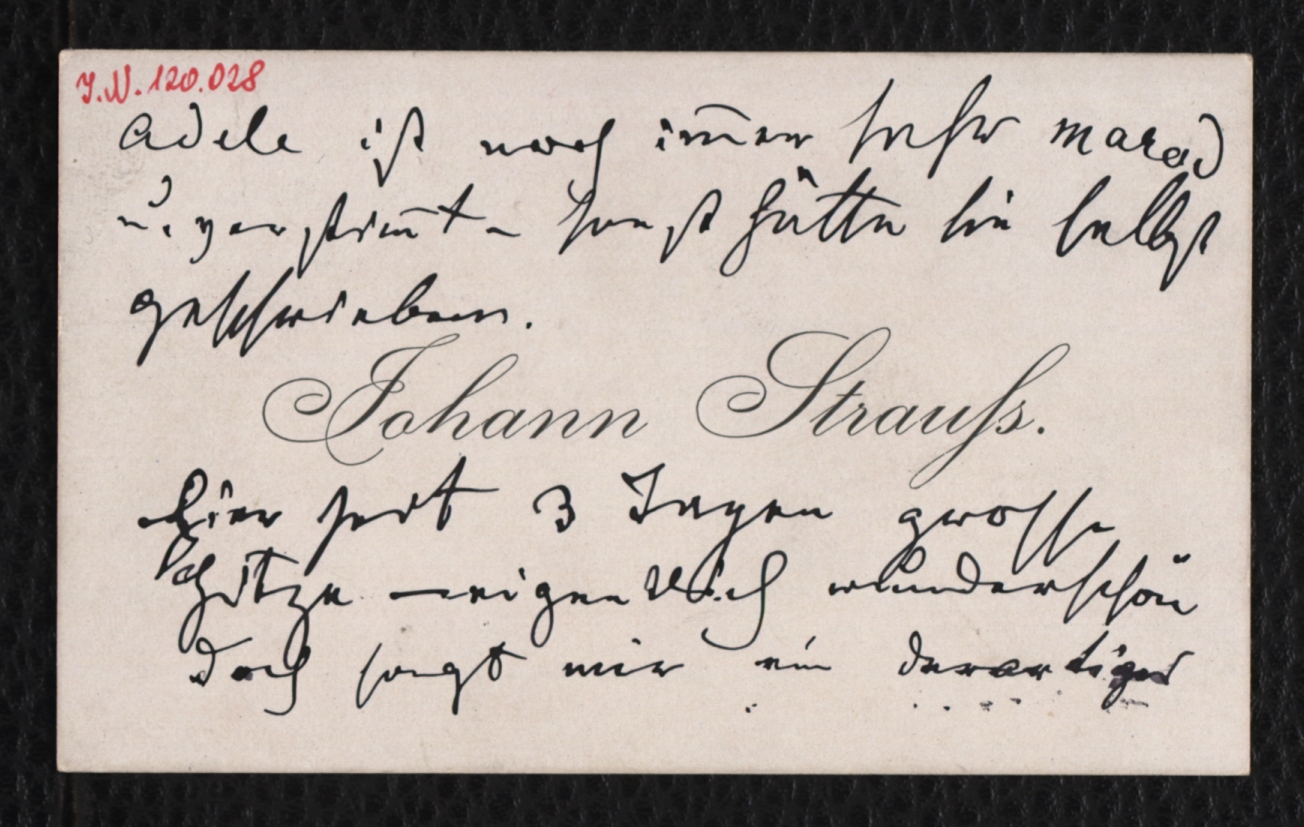 J.N. 120.028
Adele ist noch im̅er sehr marod
u. verstim̅t – sonst hätte sie selbst
geschrieben.
Johann Strauß.
Hier seit 3 Tagen grosse
Hitze – eigentlich wunderschön
doch sagt mir ein derartiges